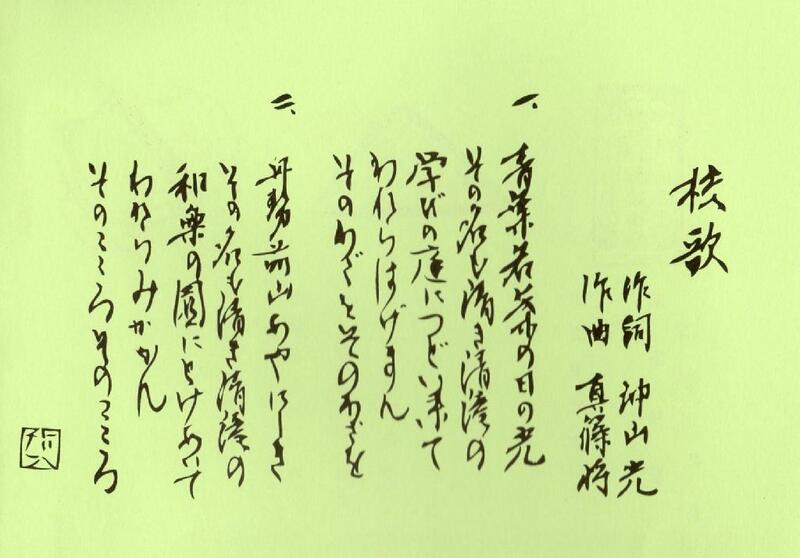 校歌
作詞 沖山光
作曲 真篠将
一、青葉若葉の日の光
その名も清き清滝の
学びの庭につどい来て
われらはげまん
そのわざをそのわざを
二、丹勢前山あやにしき
その名も清き清滝の
和樂の園にとけあいて
われらみがかん
そのこころそのこころ